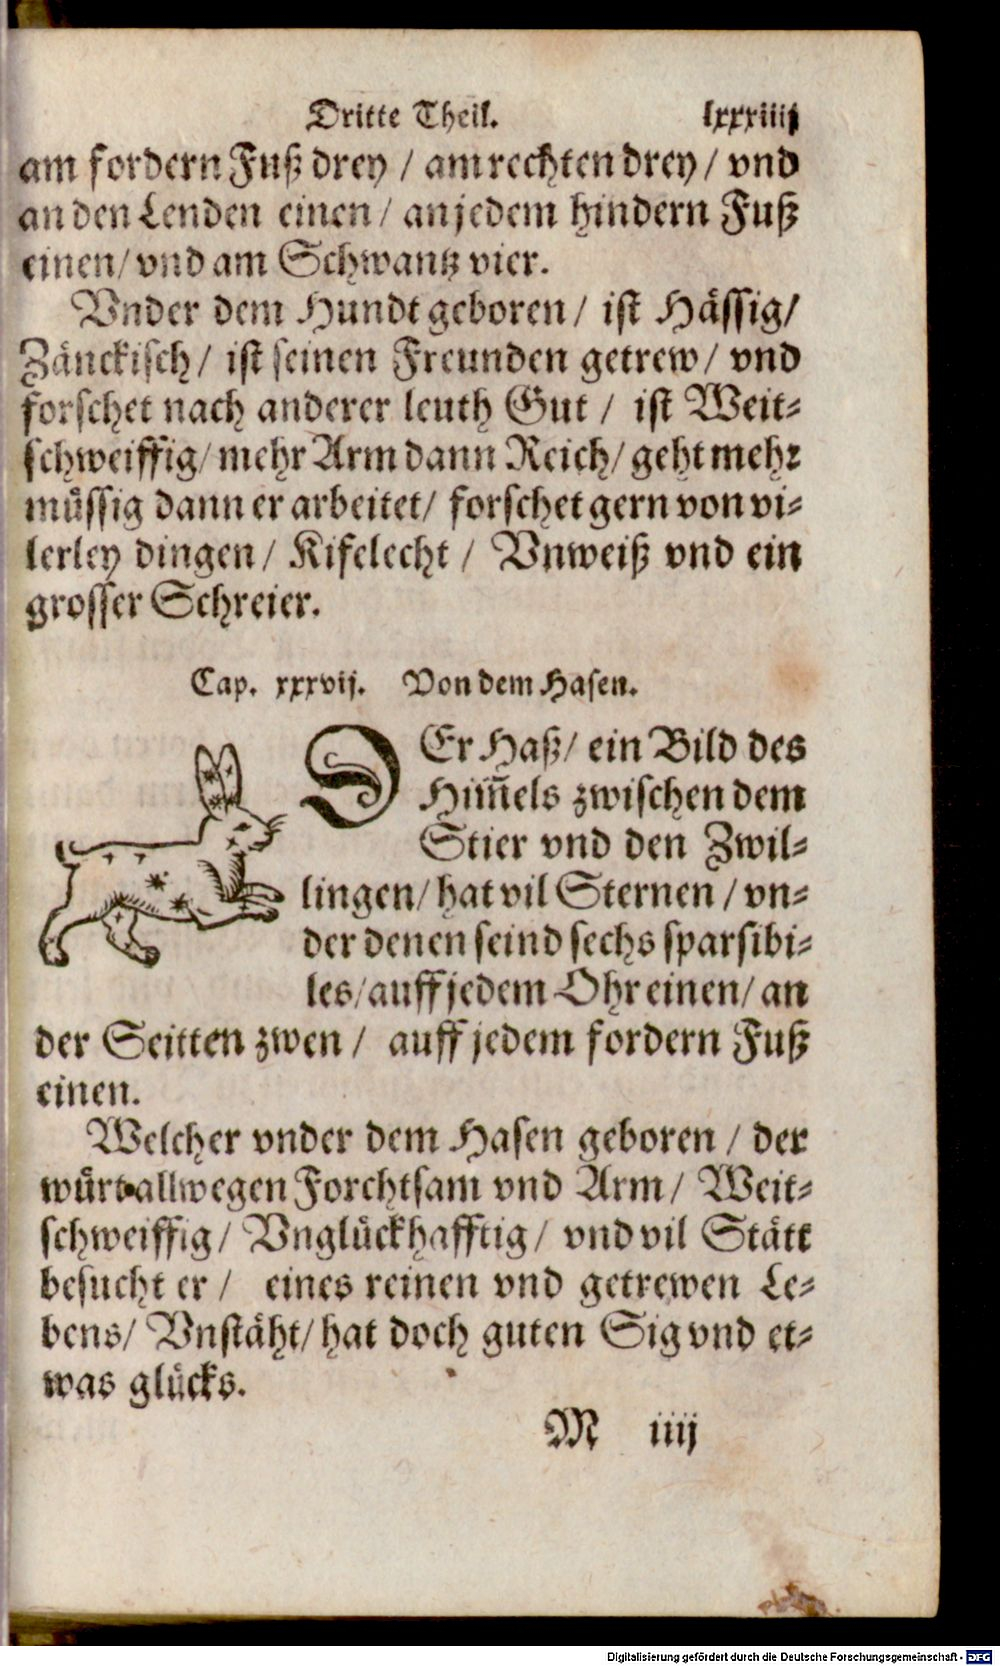 Dritte Theil. lxxxiiij
am fordern Fuß drey / am rechten drey / vnd
an den Lenden einen / an jedem hindern Fuß
einen / vnd am Schwantz vier.
Vnder dem Hundt geboren / ist Hässig /
Zänckisch / ist seinen Freunden getrew / vnd
forschet nach anderer leuth Gut / ist Weit-
schweiffig / mehr Arm dann Reich / geht mehr
müssig dann er arbeitet / forschet gern von vi-
lerley dingen / Kifelecht / Vnweiß vnd ein
grosser Schreier.
Cap. xxxvij. Von dem Hasen.
DEr Haß / ein Bild des
Him̃els zwischen dem
Stier vnd den Zwil-
lingen / hat vil Sternen / vn-
der denen seind sechs sparsibi-
les / auff jedem Ohr einen / an
der Seitten zwen / auff jedem fordern Fuß
einen.
Welcher vnder dem Hasen geboren / der
würd allwegen Forchtsam vnd Arm / Weit-
schweiffig / Vnglückhafftig / vnd vil Stätt
besucht er / eines reinen vnd getrewen Le-
bens / Vnstäht / hat doch guten Sig vnd et-
was glücks.
M iiij
Digitalisierung gefördert durch die Deutsche Forschungsgemeinschaft - DFG